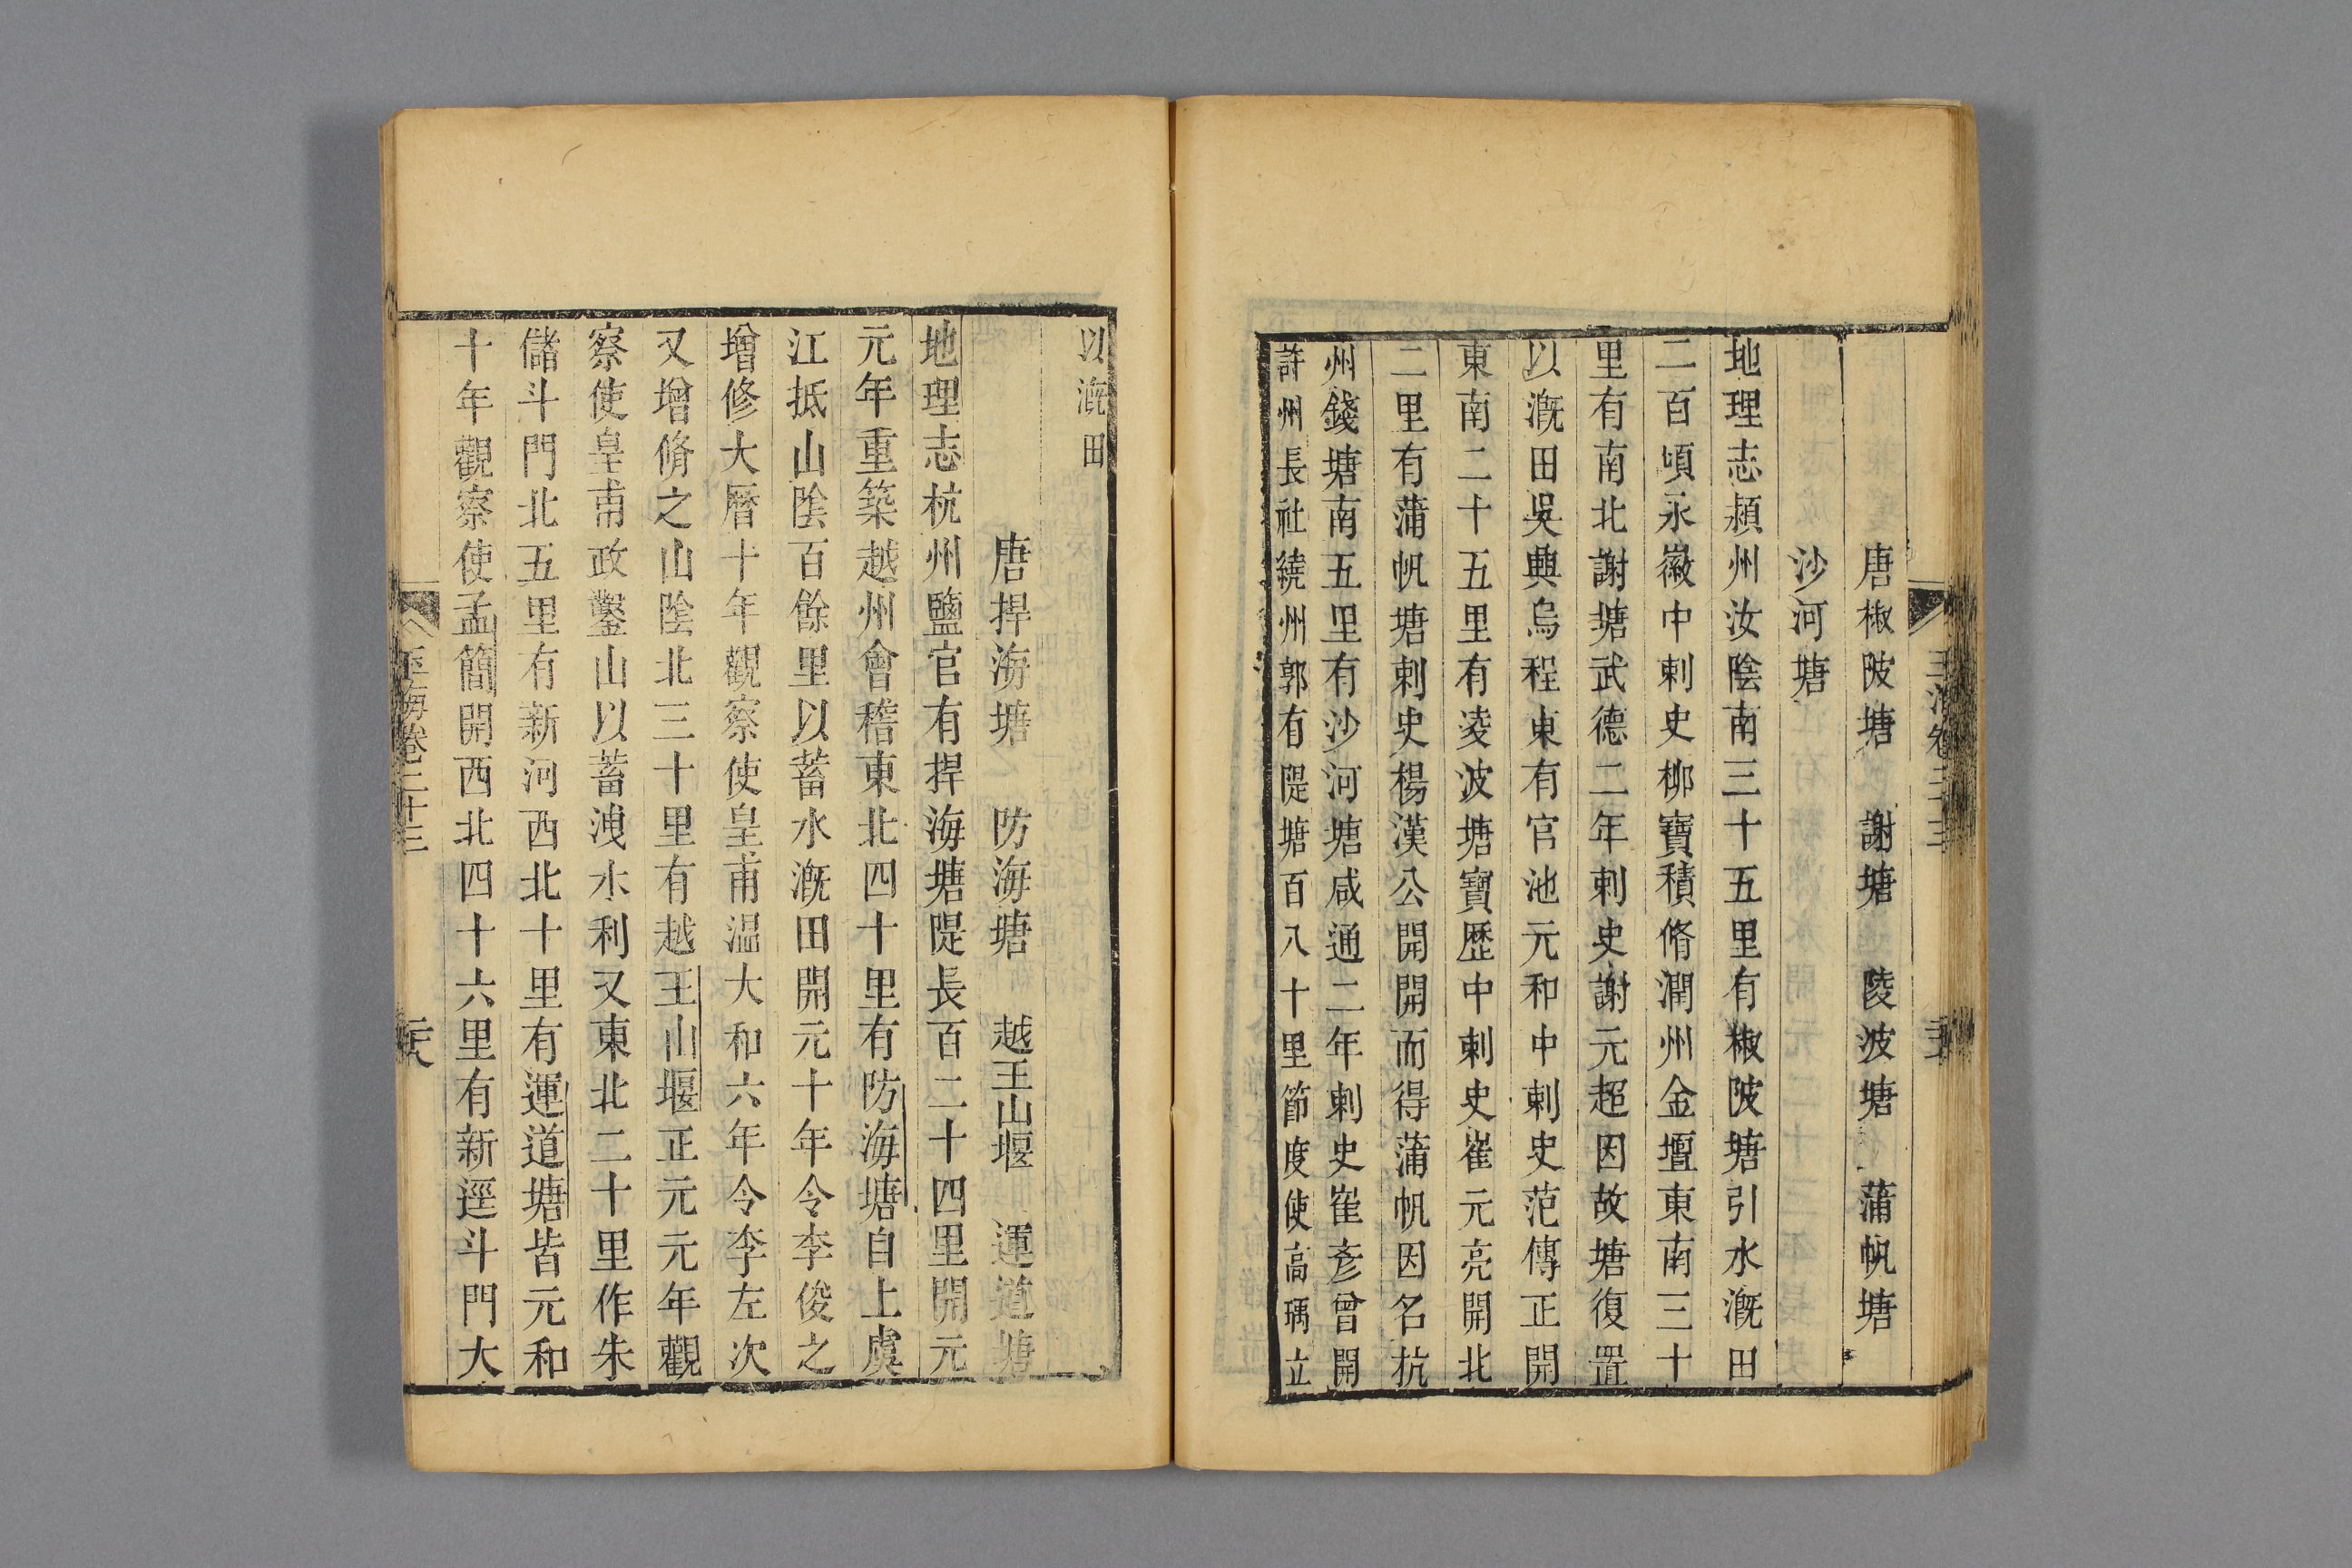 唐椒陂塘　謝塘　陵波塘　蒲帆塘
沙河塘
地理志潁州汝陰南三十五里有椒陂塘引水漑田
二百頃永徽中刺史柳寶積脩潤州金壇東南三十
里有南北謝塘武德二年刺史謝元超因故塘復置
以漑田吳興烏程東有官池元和中刺史范傳正開
東南二十五里有凌波塘寶歷中刺史崔元亮開北
二里有蒲帆塘刺史楊漢公開開而得蒲帆因名杭
州錢塘南五里有沙河塘咸通二年刺史崔彥曾開
許州長社繞州郭有隄塘百八十里節度使高瑀立
以漑田
唐捍海塘　防海塘　越王山堰　運道塘
地理志杭州鹽官有捍海塘隄長百二十四里開元
元年重築越州會稽東北四十里有防海塘自上虞
江抵山陰百餘里以蓄水漑田開元十年令李俊之
增修大曆十年觀察使皇甫温大和六年令李左次
又增脩之山陰北三十里有越王山堰正元元年觀
察使皇甫政鑿山以蓄洩水利又東北二十里作朱
儲斗門北五里有新河西北十里有運道塘皆元和
十年觀察使孟簡開西北四十六里有新逕斗門大
玉海卷二十三